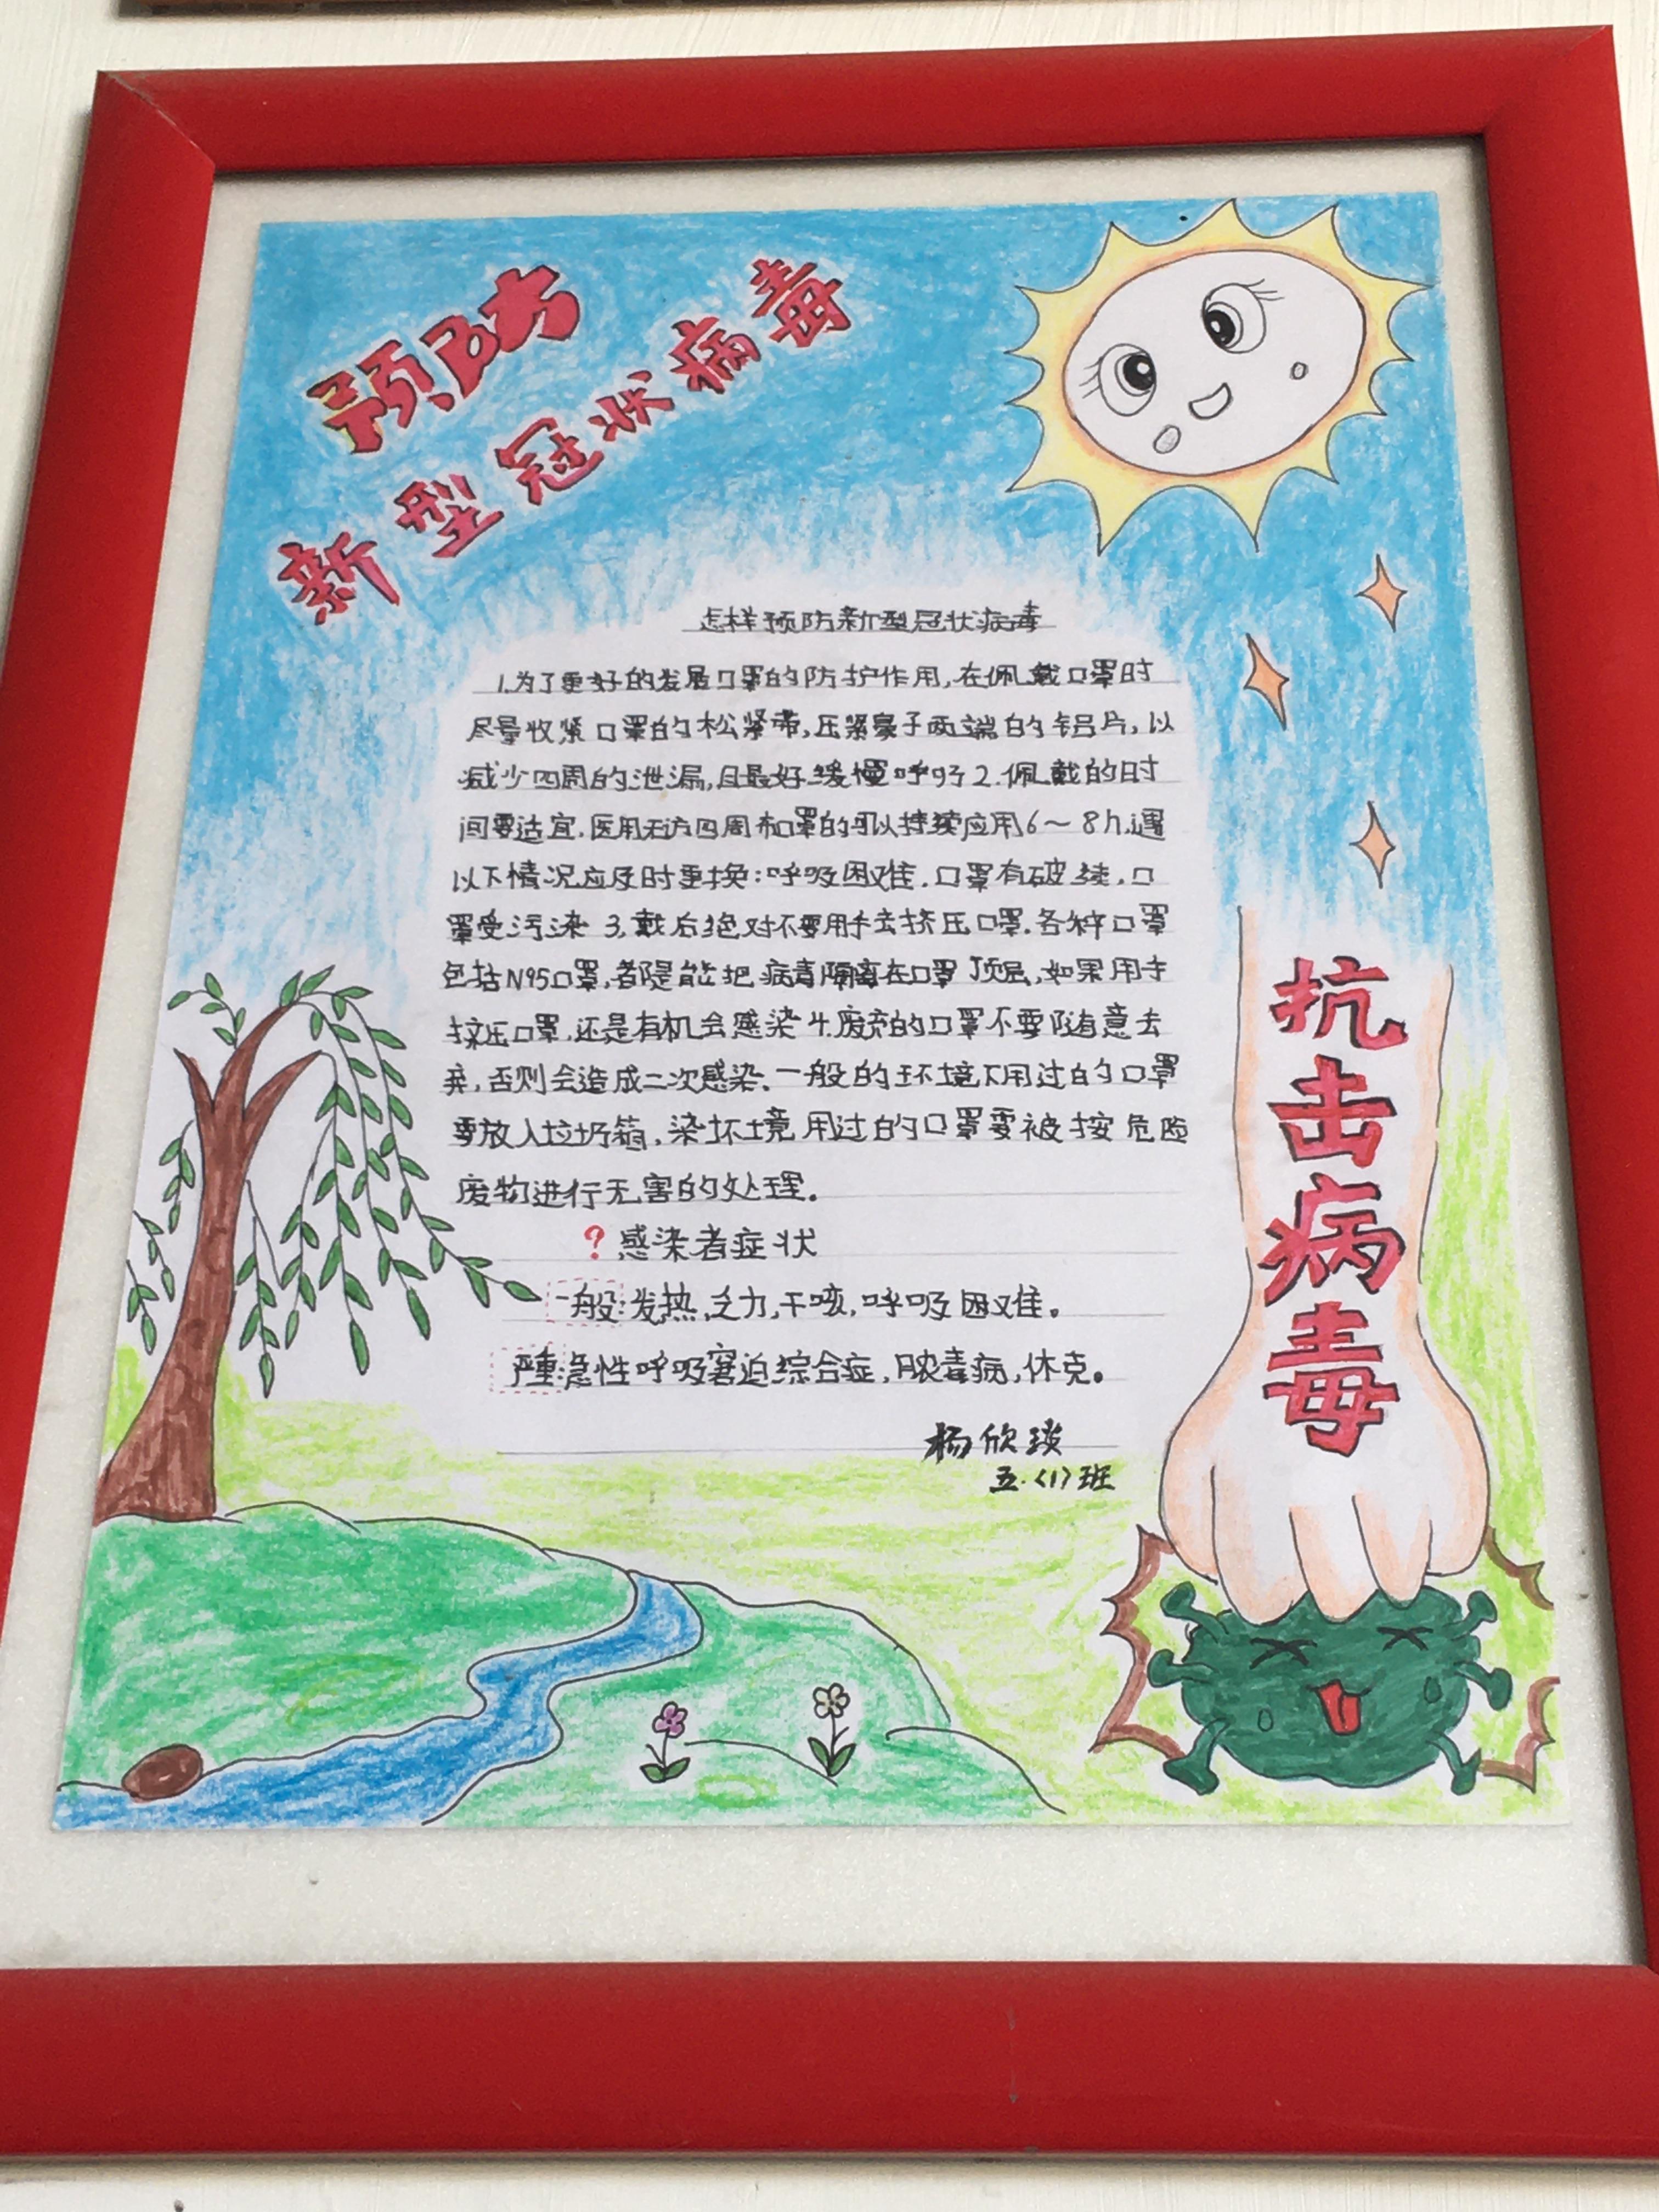 预防
新型冠状病毒
怎样预防新型冠状病毒
1.为了更好的发展口罩的防护作用,在佩戴口罩时
尽量收紧口罩的松紧带,压紧鼻子两端的铝片,以
减少四周的泄漏,且最好缓慢呼吸2.佩戴的时
间要适宜.医用无方四周和口罩的可以持续应用6～8h,遇
以下情况应及时更换:呼吸困难.口罩有破续.口
罩受污染 3,戴后绝对不要用手去挤压口罩.各种口罩
包括N95口罩,都隄能把病毒隔离在口罩顶层,如果用手
挤压口罩,还是有机会感染4.废弃的口罩不要随意去
弃,否则会造成二次感染.一般的环境下用过的口罩
要放入垃圾箱,染环境用过的口罩要被按危险
废物进行无害的处理。
?感染者症状
一般:发热,乏力,干咳,呼吸困难。
严重:急性呼吸窘迫综合症,脓毒病,休克。
杨欣琰
五.<1>班
抗击病毒